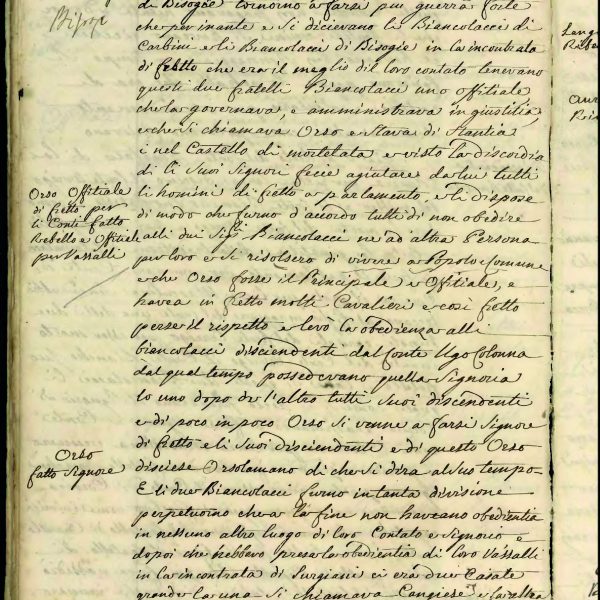 Bisogi
di Bisogie tornorno a farsi piu guerra forte
che per inante e si dicevano li Biancolacci di
Carbini e li Biancolacci di Bisogie in la incontrata
di fretto che era il meglio dil loro contato tenevano
questi due fratelli Biancolacci uno offitiale
che la governava, e amministrava in giustitia
e che si chiamava Orso e stava di stantia
i nel Castello di mortetata e visto la discordia
di li suoi Signori fecie agiutare da lui tutti
li homini di fretto a parlamento, e li dispose
di modo che furno d'accordo tutti di non obedire
alli dui Sig.ri Biancolacci ne ad altra Persona
per loro e si risolsero di vivere a Popolo Comune
e che Orso fosse il Principale e Offitiale, e
havea in fretto molti Cavalieri e cosi fretto
perse il rispetto e levò la obedienza alli
biancolacci disciendenti dal Conte Ugo Colonna
dal qual tempo possedevano quella Signoria
lo uno dopo de l'altro tutti suoi discendenti
e di poco in poco Orso si venne a farsi Signore
di fretto e li suoi disciendenti e di questo Orso
disciese Orsolamano di che si dira al suo tempo
E li due Biancolacci furno in tanta divisione
perpetuorno che a la fine non haveano obedientia
in nessuno altro luogo di loro Contato e Signorio e
dopoi che hebbero presa la obedientia di loro Vassalli
in la incontrata di Surgiani ci era due Casate
grande la una si chiamava
Orso Offitiale
di fretto per
li Conti fatto
Rebello e Offitiale
per Vassalli
Orso
fatto Signore